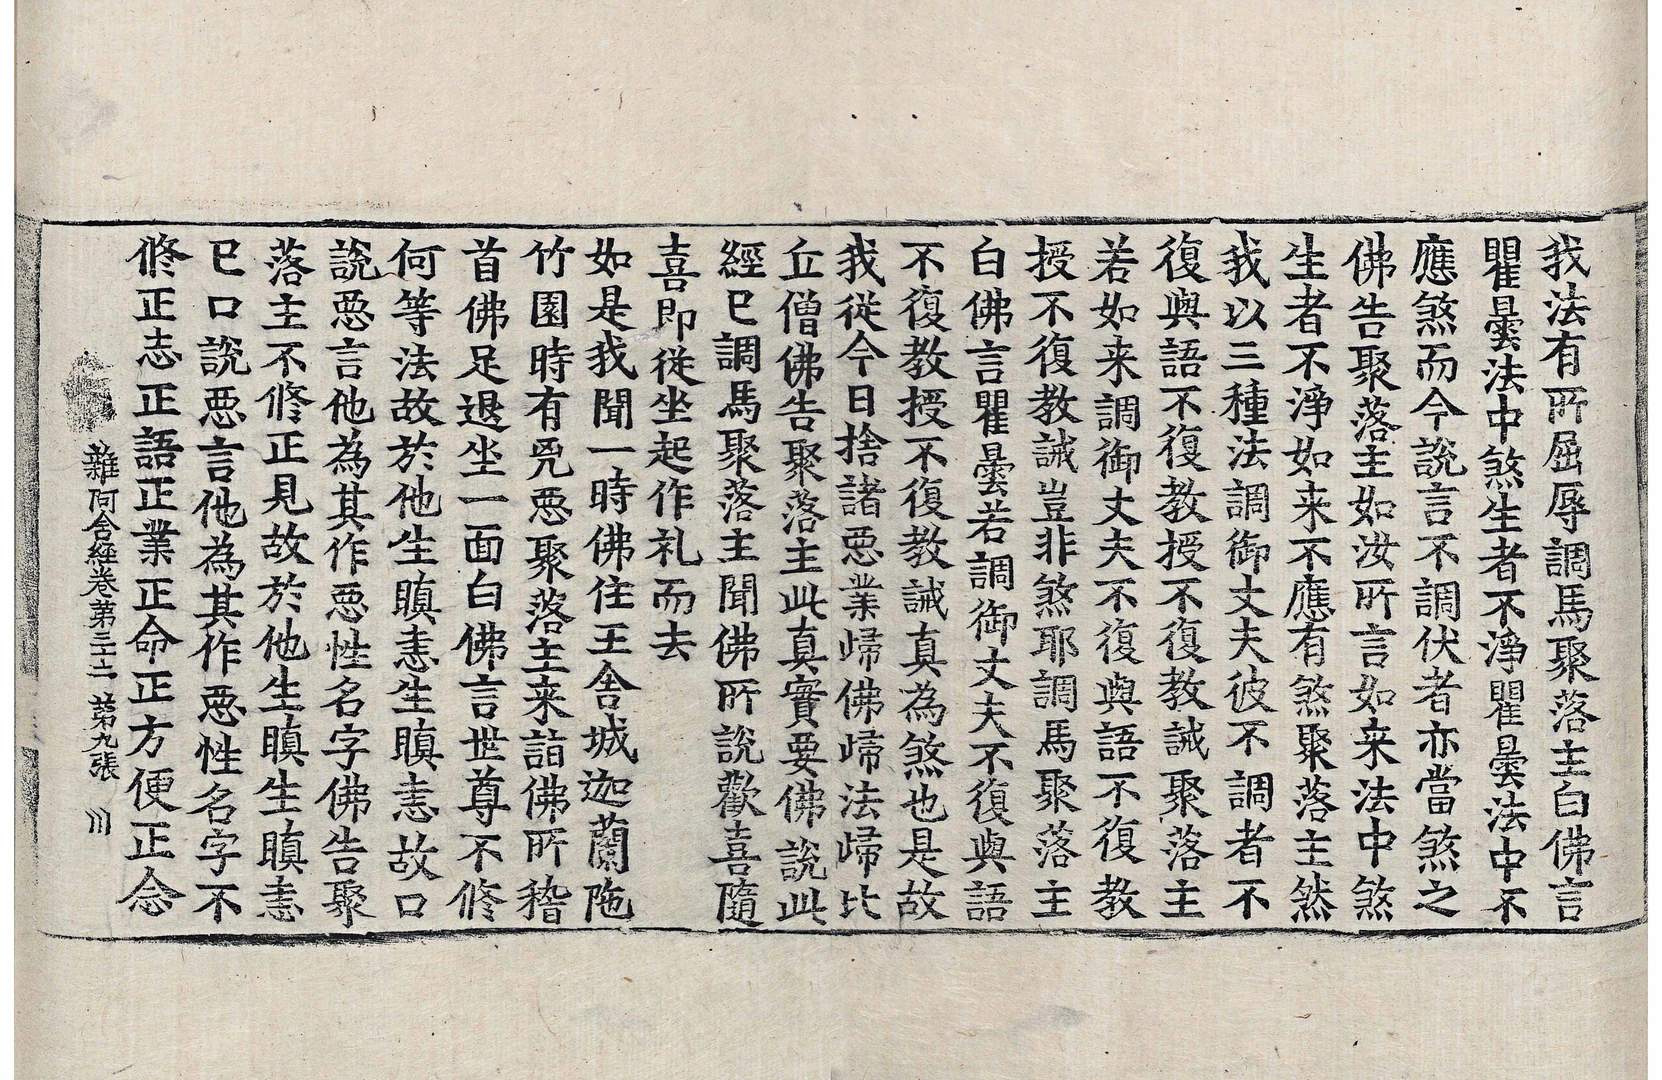 我法有所屈辱調馬聚落主白佛言
瞿曇法中煞生者不淨瞿曇法中不
應煞而今說言不調伏者亦當煞之
佛告聚落主如汝所言如来法中煞
生者不淨如来不應有煞聚落主然
我以三種法調御丈夫彼不調者不
復與語不復教授不復教誡聚落主
若如来調御丈夫不復與語不復教
授不復教誡豈非煞耶調馬聚落主
白佛言瞿曇若調御丈夫不復與語
不復教授不復教誡真為煞也是故
我從今日捨諸悪業歸佛歸法歸比
丘僧佛告聚落主此真實要佛說此
經已調馬聚落主聞佛所說歡喜隨
喜即從坐起作礼而去
如是我聞一時佛住王舍城迦蘭陁
竹園時有兇悪聚落主来詣佛所稽
首佛足退坐一面白佛言世尊不修
何等法故於他生瞋恚生瞋恚故口
說悪言他為其作悪性名字佛告聚
落主不修正見故於他生瞋生瞋恚
已口說悪言他為其作悪性名字不
修正志正語正業正命正方便正念
雜阿含經卷第三十二 第九張